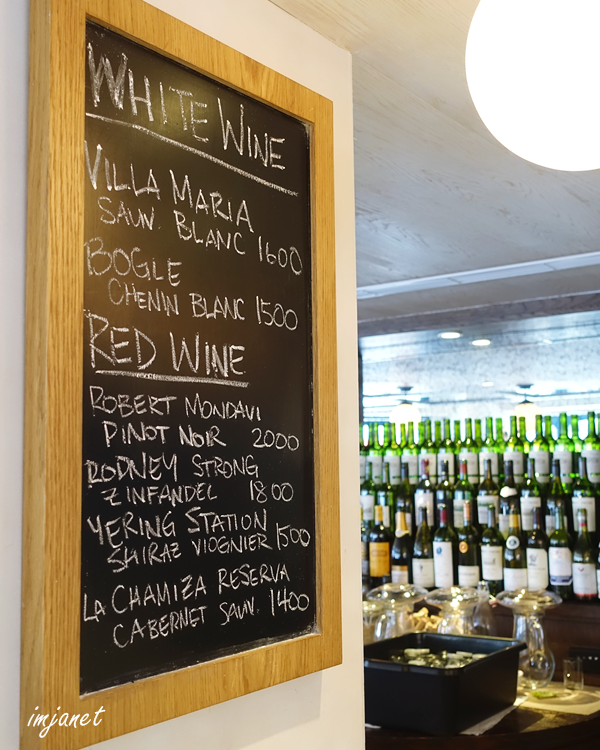 WHITE WINE
VILLA MARIA
SAUV. BLANC 1600
BOGLE
CHENIN BLANC 1500
RED WINE
ROBERT MONDAVI
PINOT NOIR 2000
RODNEY STRONG
ZINFANDEL 1800
YERING STATION
SHIRAZ VIOGNIER 1500
LA CHAMIZA RESERVA
CABERNET SAUV. 1400
imjanet